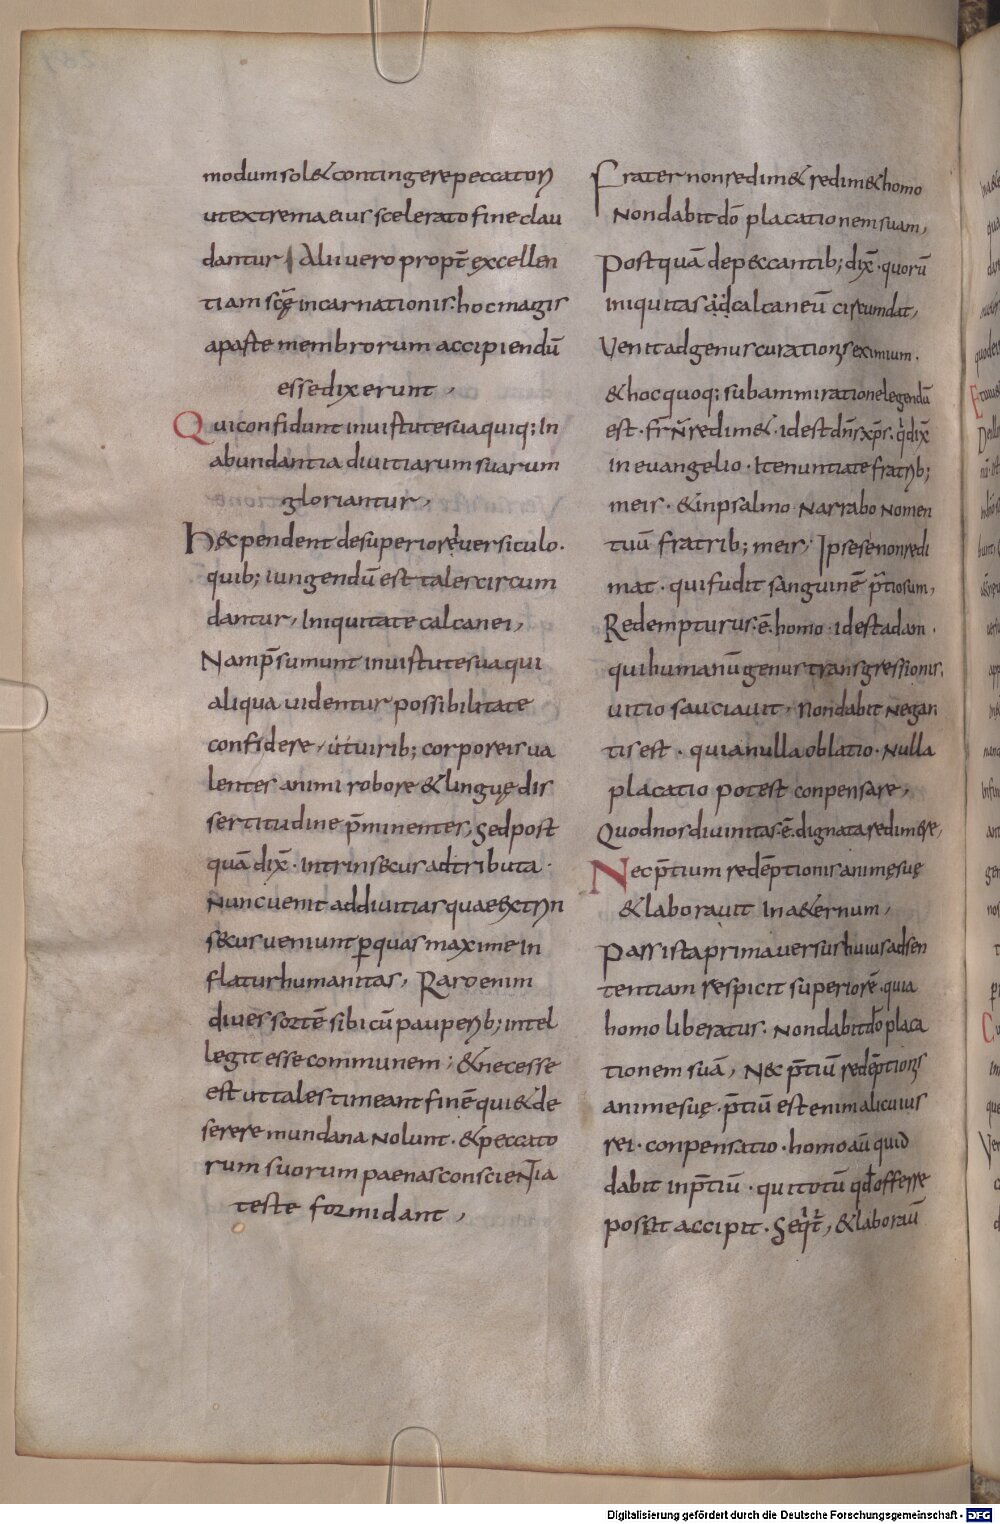 modum sol& contingere peccatorū
ut extrema eius scelerato fine clau
dantur Alii uero propt̄ excellen
tiam scę̄ incarnationis. hoc magis
a parte membrorum accipiendū
esse dixerunt,
Qui confidunt in uirtute sua quiq; In
abundantia diuitiarum suarum
gloriantur,
H&c pendent de superiore uersiculo.
quib; iungendū est tales circum
dantur, Iniquitate calcanei,
Nam p̄sumunt in uirtute sua qui
aliqua uidentur possibilitate
confidere, ut uirib; corporeis ua
lentes animi robore & linguę dis
sertitudine p̄minentes, Sed post
quā dix̄. Intrinsecus adtributa.
Nunc uenit ad diuitias quae extrin
secus ueniunt ꝑ quas maxime in
flatur humanitas, Raro enim
diues sortē sibi cū pauperib; intel
legit esse communem; & necesse
est ut tales timeant finē qui & de
serere mundana nolunt. & peccato
rum suorum paenas conscientia
teste formidant,
Frater non redim& redim& homo
Non dabit dō placationem suam,
Postquā de peccantib; dix̄. quorū
iniquitas ad calcaneū circumdat,
Venit ad genus curationis eximium.
& hoc quoq; sub ammiratione legendū
est. fr̄ n̄ redim&. id est dn̄s xp̄s. qd dix̄
in euangelio. Ite nuntiate fratrib;
meis. & in psalmo Narrabo nomen
tuū fratrib; meis; Ipse se non redi
mat. qui fudit sanguinē p̄tiosum,
Redempturus.ē. homo id est adam.
qui humanū genus transgressionis.
uitio sauciauit, Non dabit negan
tis est. quia nulla oblatio. Nulla
placatio potest conpensare,
Quod nos diuinitas.ē. dignata redimere,
Nec p̄tium redēptionis animę suę
& laborauit In a&ernum,
Pars ista prima uersus huius ad sen
tentiam respicit superiorē. quia
homo liberatus. Non dabit dō placa
tionem suā, Nec p̄tiū redēptionis
anime suę. p̄tiū est enim alicuius
rei. conpensatio. homo aū quid
dabit in p̄tiū. qui totū qd offerre
possit accipit. Seqt̄, & laboraū
Digitalisierung gefördert durch die Deutsche Forschungsgemeinschaft - DFG